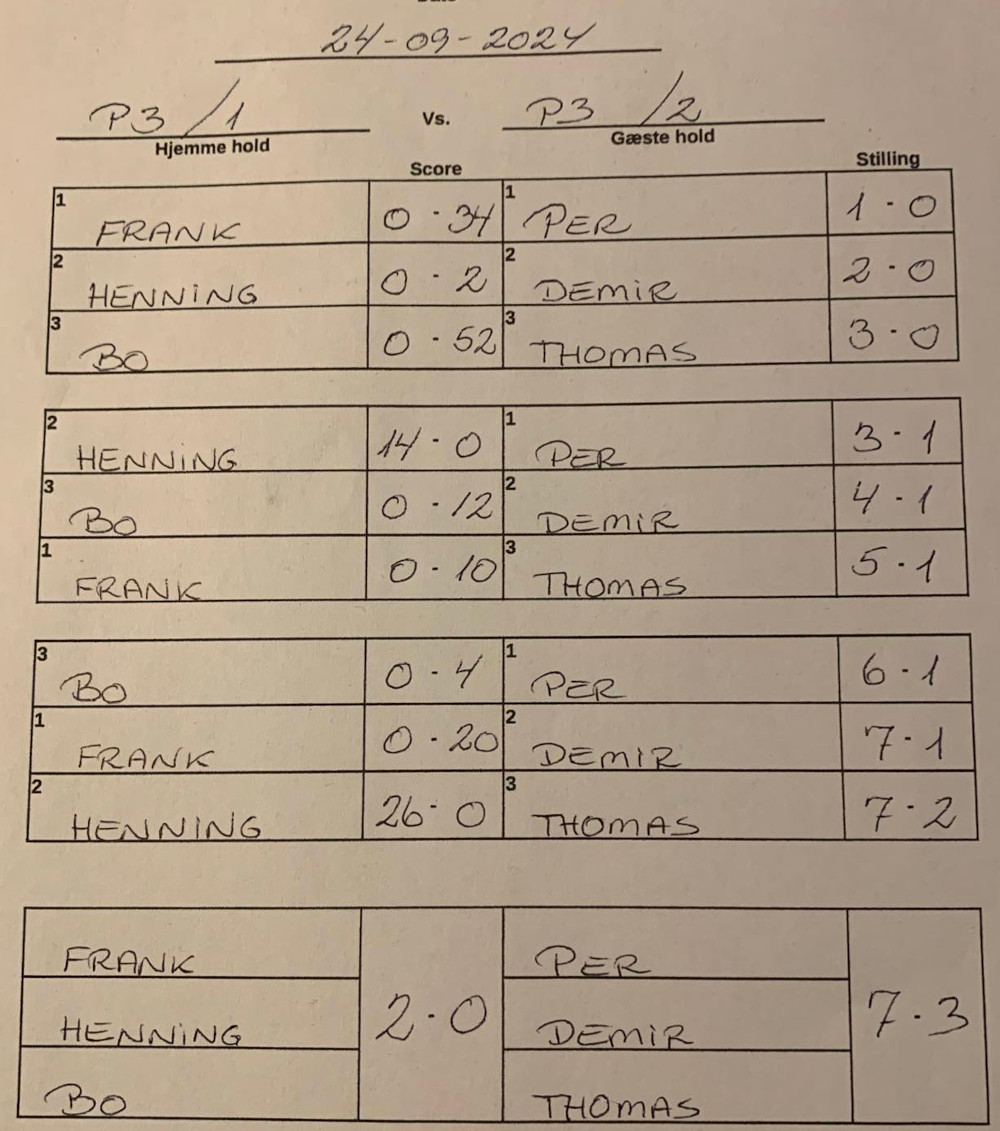 24-09-2024
P3 /1 Vs. P3 /2
Hjemme hold Gæste hold
Score Stilling
1 FRANK 0 - 34 1 PER 1 - 0
2 HENNING 0 - 2 2 DEMIR 2 - 0
3 BO 0 - 52 3 THOMAS 3 - 0
2 HENNING 14 - 0 1 PER 3 - 1
3 BO 0 - 12 2 DEMIR 4 - 1
1 FRANK 0 - 10 3 THOMAS 5 - 1
3 BO 0 - 4 1 PER 6 - 1
1 FRANK 0 - 20 2 DEMIR 7 - 1
2 HENNING 26 - 0 3 THOMAS 7 - 2
FRANK PER
HENNING 2 - 0 DEMIR 7 - 3
BO THOMAS